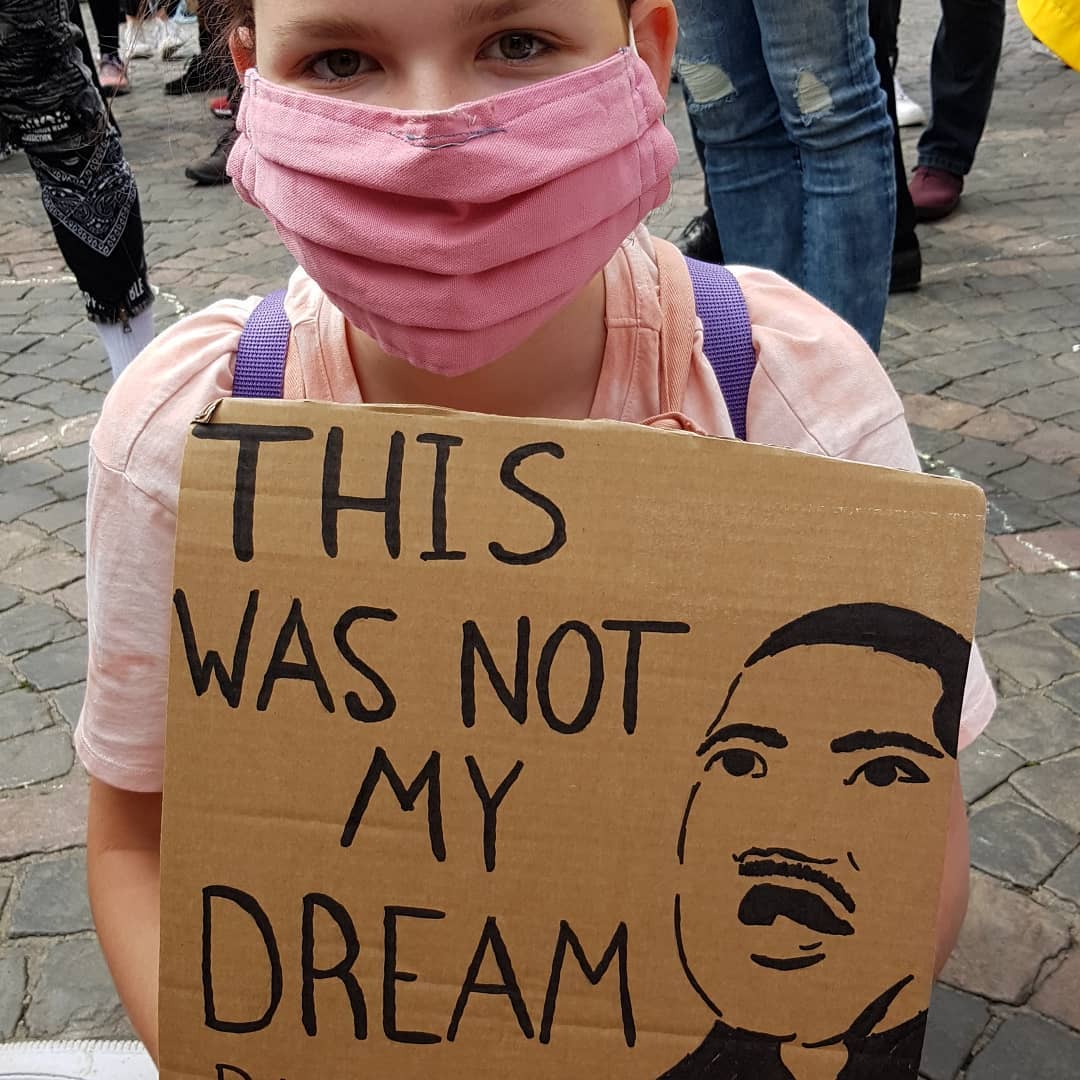 THIS
WAS NOT
MY
DREAM